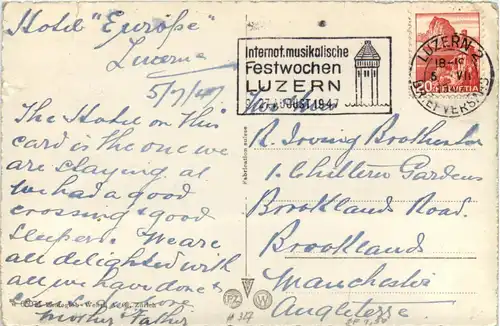 Hotel "Europe"
Lucerne
5/7/47
The Hotel on this
card is the one we
are staying at
we had a good
crossing & good
sleepers. We are
all delighted with
all we have done &
Mother & Father
Internat. musikalische
Festwochen
LUZERN
AUGUST 1947
LUZERN 2
18-
VII
BRIEFVERSAND
20
HELVETIA
Fabrication suisse
R. Irving Brotherton
1. Chiltern Gardens
Brooklands Road.
Brooklands
Manchester
Angleterre